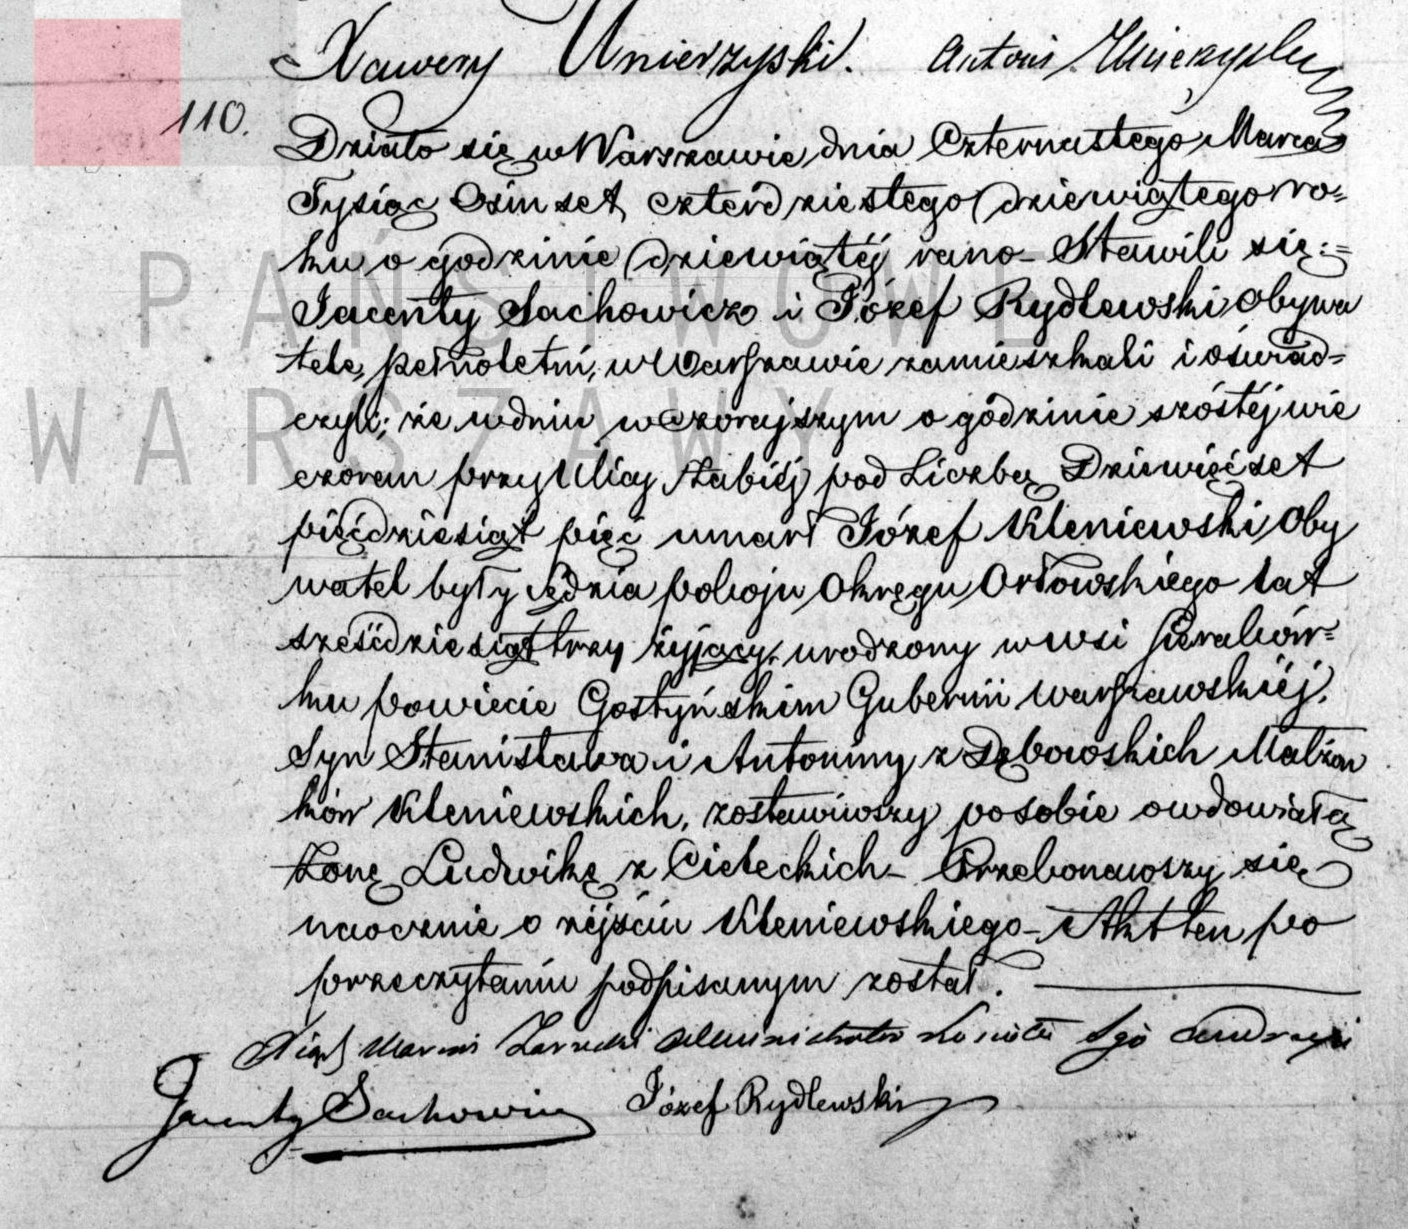 Xawery Unierzyski. Antoni Unierzyski
110.
Działo się w Warszawie dnia Czternastego Marca
Tysiąc Osimset czterdziestego dziewiątego ro=
ku o godzinie dziewiątéj rano – Stawili się:=
Jacenty Sachowicz i Józef Rydlewski Obywa
tele, pełnoletni, w Warszawie zamieszkali i oświad=
czyli; że w dniu wczorajszym o godzinie szóstéj wie
czorem przy Ulicy Żabiéj pod Liczbą Dziewięćset
pięćdziesiąt pięć umarł Józef Kleniewski Oby
watel były Sędzia pokoju Okręgu Orłowskiego lat
sześćdziesiąt trzy żyjący, urodzony w wsi Sieraków=
ku powiecie Gostyńskim Gubernii Warszawskiéj.
Syn Stanisława i Antoniny z Dębowskich Małżon
ków Kleniewskich, zostawiwszy po sobie owdowiałą
Żonę Ludwikę z Cieleckich – Przekonawszy się
naocznie o zejściu Kleniewskiego – Akt ten po
przeczytaniu podpisanym został.
Xiądz Administrator Kościoła Sgo Andrzeja
Jacenty Sachowicz Józef Rydlewski
PAŃSTWOWE
WARSZAWY